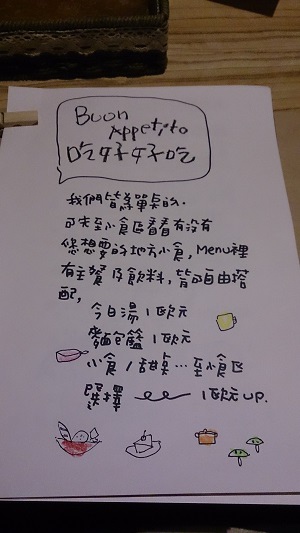 Buon
Appetito
吃好好吃
我們皆為單點的.
可先至小食區看看,有没有
您想要的地方小食,Menu裡
有主餐及飲料,皆可自由搭
配,
今日湯 1歐元
麵包籃 1歐元
小食/甜點…至小食區
選擇 1歐元 UP.